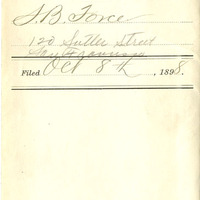 J. B. Force
120 Sutter Street
San Francisco
Filed Oct 8th, 1898.